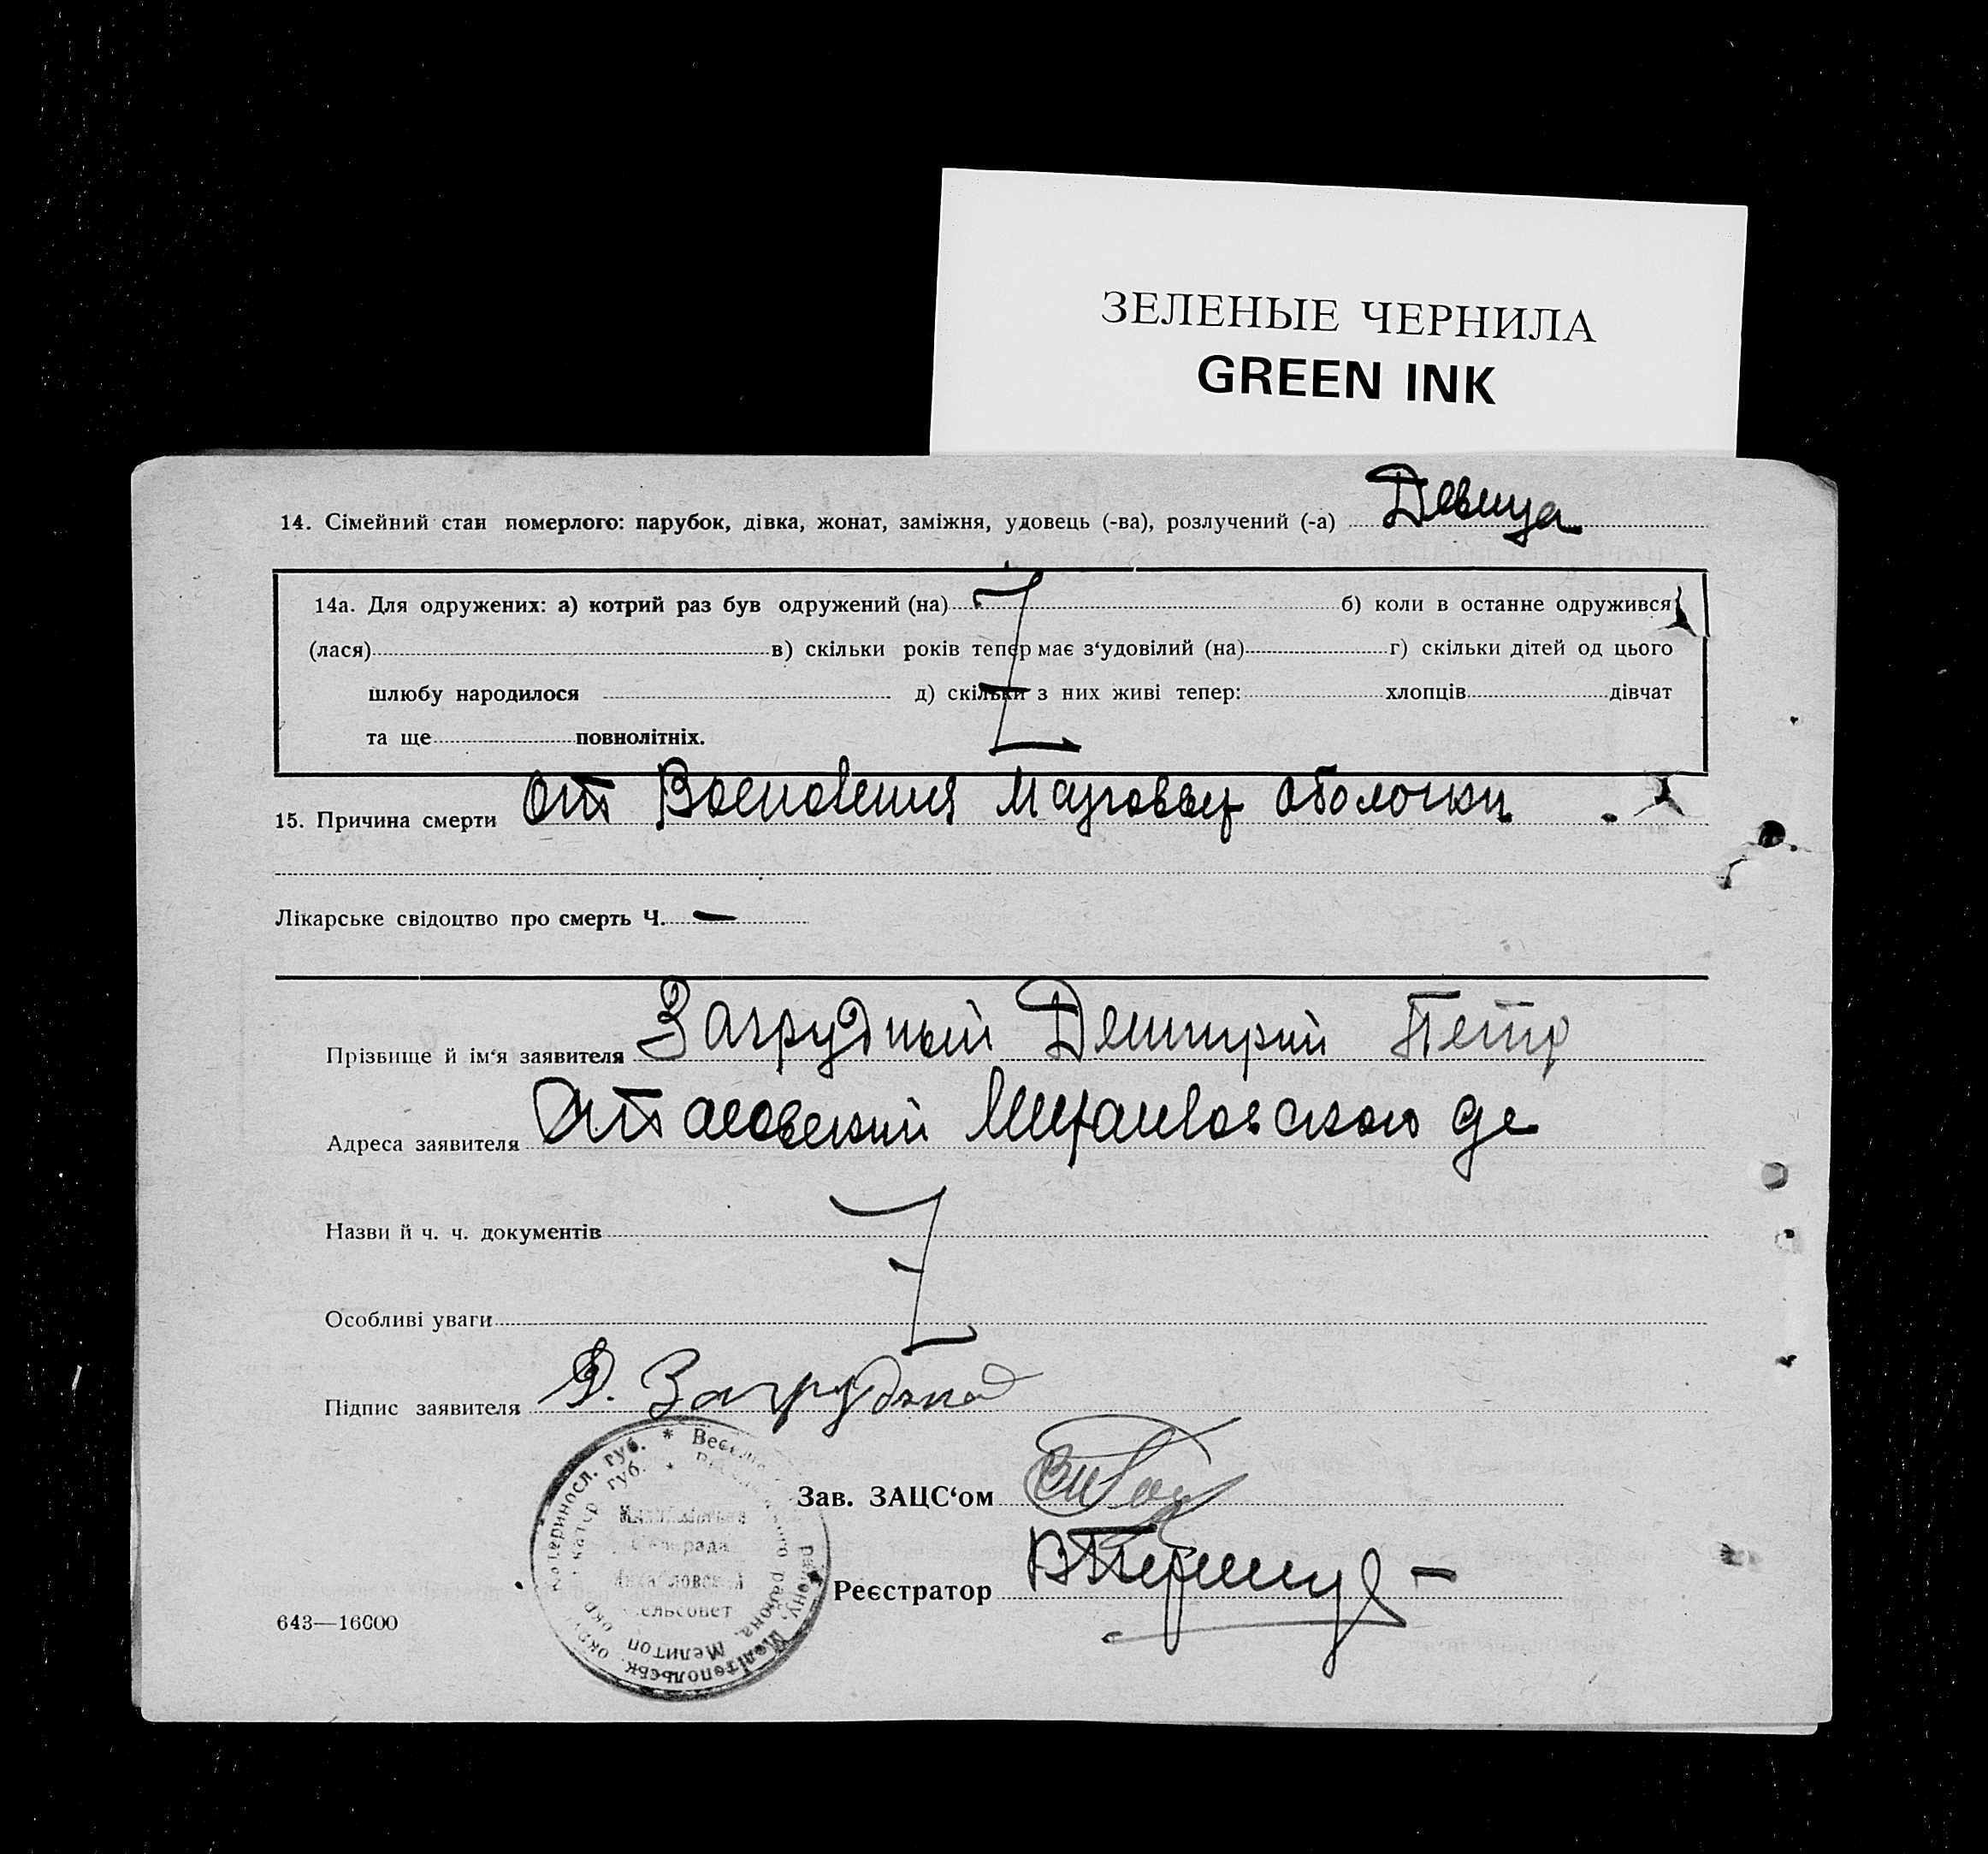 ЗЕЛЕНЫЕ ЧЕРНИЛА
GREEN INK
14. Сімейний стан померлого: парубок, дівка, жонат, заміжня, удовець (-ва), розлучений (-а) Девица
14а. Для одружених: а) котрий раз був одружений (на) б) коли в останне одружився
(лася) в) скільки років тепер має з‘удовілий (на) г) скільки дітей од цього
шлюбу народилося д) скільки з них живі тепер: хлопців дівчат
та ще повнолітніх.
15. Причина смерти от Воспаления Мозговых оболочки.
Лікарське свідоцтво про смерть Ч. —
Прізвище й ім‘я заявителя Загрудный Дмитрий Петр
Адреса заявителя Михайловского
Назви й ч. ч. документів
Особливі уваги
Підпис заявителя Д. Загрудной
Зав. ЗАЦС‘ом
Реєстратор
643—16000
Катериносл. губ. * района, Мелитоп
району, Мелітопольськ. окр.